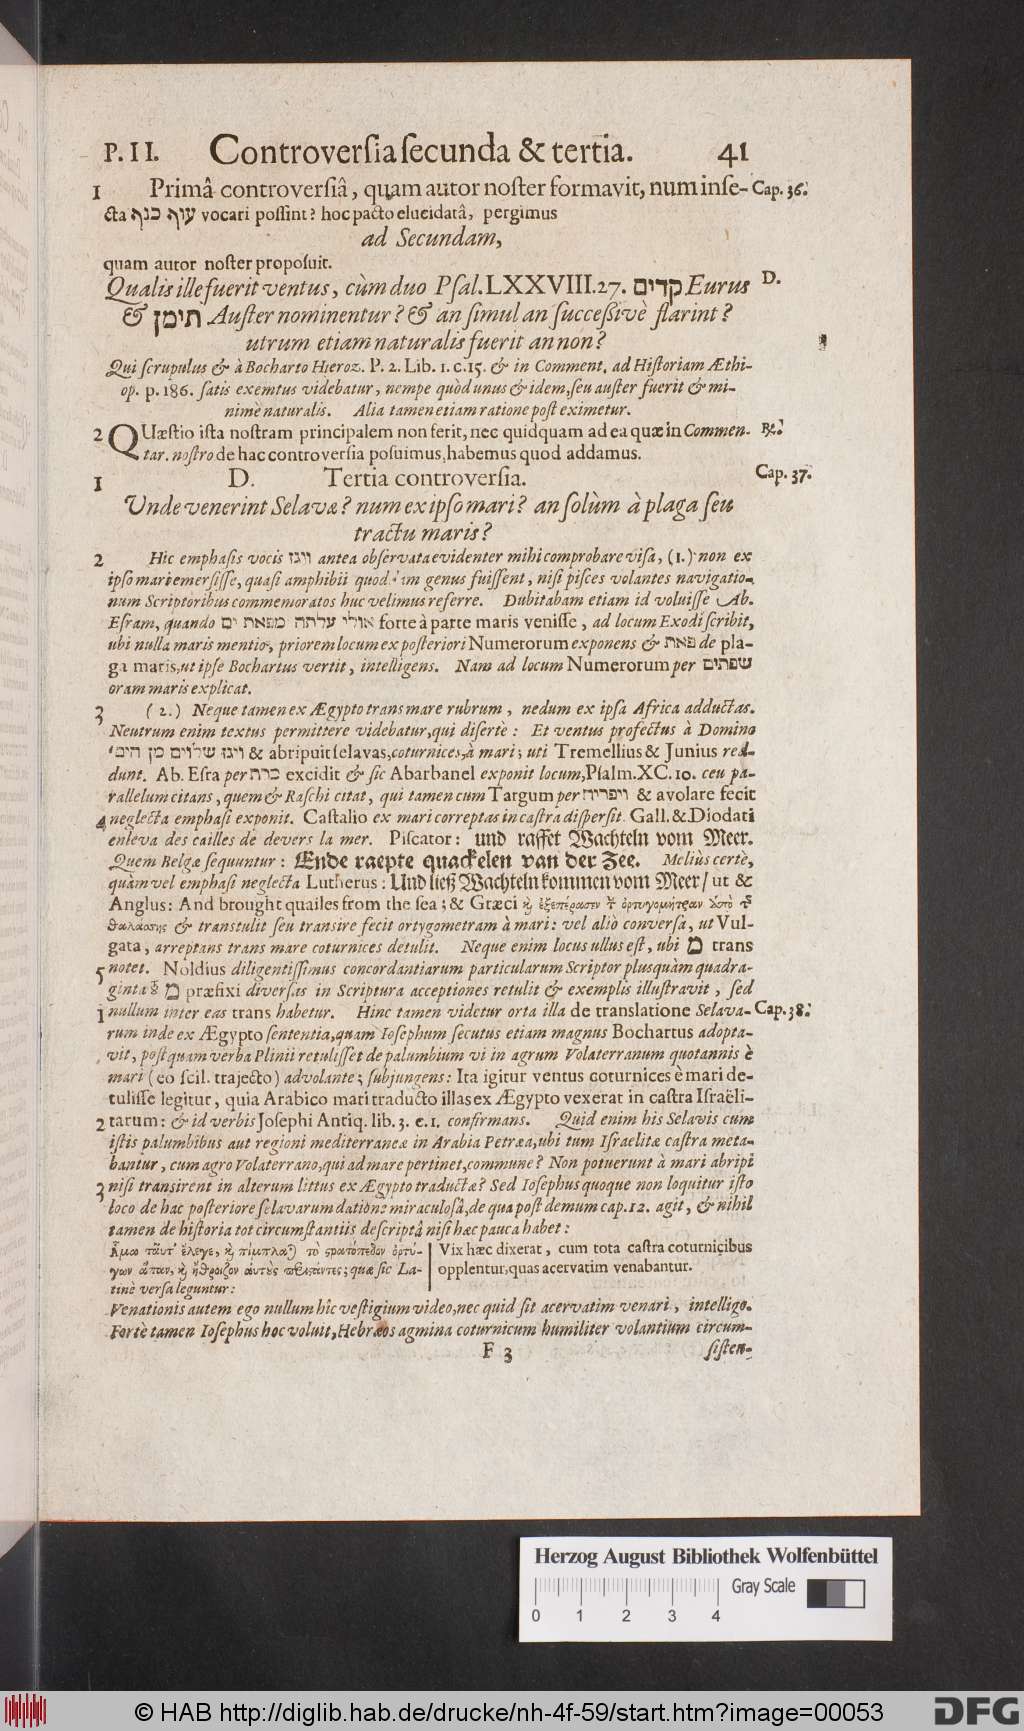 P. II. Controversia secunda & tertia. 41
1 Primâ controversiâ, quam autor noster formavit, num inse- Cap. 36.
cta עוף כנף vocari possint? hoc pacto elucidatâ, pergimus
ad Secundam,
quam autor noster proposuit.
Qualis ille fuerit ventus, cùm duo Psal. LXXVIII. 27. קדים Eurus D.
& תימן Auster nominentur? & an simul an successivè flarint?
utrum etiam naturalis fuerit an non?
Qui scrupulus & à Bocharto Hieroz. P. 2. Lib. 1. c. 15. & in Comment. ad Historiam Æthi-
op. p. 186. satis exemtus videbatur, nempe quòd unus & idem, seu auster fuerit & mi-
nimè naturalis. Alia tamen etiam ratione post eximetur.
2 QUæstio ista nostram principalem non ferit, nec quidquam ad ea quæ in Commen- ℞.
tar. nostro de hac controversia posuimus, habemus quod addamus.
1 D. Tertia controversia. Cap. 37.
Unde venerint Selavæ? num ex ipso mari? an solùm à plaga seu
tractu maris?
2 Hic emphasis vocis ויגז antea observata evidenter mihi comprobare visa, (1.) non ex
ipso mari emersisse, quasi amphibii genus fuissent, nisi pisces volantes navigatio-
num Scriptoribus commemoratos huc velimus referre. Dubitabam etiam id voluisse Ab.
Esram, quando אולי עלתה מפאת ים forte à parte maris venisse, ad locum Exodi scribit,
ubi nulla maris mentio, priorem locum ex posteriori Numerorum exponens & פאת de pla-
ga maris, ut ipse Bochartus vertit, intelligens. Nam ad locum Numerorum per שפתים
oram maris explicat.
3 (2.) Neque tamen ex Ægypto trans mare rubrum, nedum ex ipsa Africa adductas.
Neutrum enim textus permittere videbatur, qui disertè: Et ventus profectus à Domino
ויגז שלוים מן הים & abripuit selavas, coturnices, à mari; uti Tremellius & Junius red-
dunt. Ab. Esra per כרת excidit & sic Abarbanel exponit locum, Psalm. XC. 10. ceu pa-
rallelum citans, quem & Raschi citat, qui tamen cum Targum per ויפריח & avolare fecit
4 neglecta emphasi exponit. Castalio ex mari correptas in castra dispersit. Gall. & Diodati
enleva des cailles de devers la mer. Piscator: und raffet Wachteln vom Meer.
Quem Belgæ sequuntur: Ende raepte quackelen van der Zee. Meliùs certè,
quàm vel emphasi neglecta Lutherus: Und ließ Wachteln kommen vom Meer / ut &
Anglus: And brought quailes from the sea; & Græci ϗ ἐξεπέρασεν τ̃ ὀρτυγομήτραν ἀπὸ τ̃
θαλάσσης & transtulit seu transire fecit ortygometram à mari: vel aliò conversa, ut Vul-
gata, arreptans trans mare coturnices detulit. Neque enim locus ullus est, ubi מ trans
5 notet. Noldius diligentissimus concordantiarum particularum Scriptor plusquàm quadra-
ginta מ præfixi diversas in Scriptura acceptiones retulit & exemplis illustravit, sed
1 nullum inter eas trans habetur. Hinc tamen videtur orta illa de translatione Selava- Cap. 38.
rum inde ex Ægypto sententia, quam Iosephum secutus etiam magnus Bochartus adopta-
vit, postquam verba Plinii retulisset de palumbium vi in agrum Volaterranum quotannis è
mari (eo scil. trajecto) advolante; subjungens: Ita igitur ventus coturnices è mari de-
tulisse legitur, quia Arabico mari traducto illas ex Ægypto vexerat in castra Israëli-
2 tarum: & id verbis Josephi Antiq. lib. 3. c. 1. confirmans. Quid enim his Selavis cum
istis palumbibus aut regioni mediterraneæ in Arabia Petræa, ubi tum Israelitæ castra meta-
bantur, cum agro Volaterrano, qui ad mare pertinet, commune? Non potuerunt à mari abripi
3 nisi transirent in alterum littus ex Ægypto traductæ? Sed Iosephus quoque non loquitur isto
loco de hac posteriore selavarum datione miraculosâ, de qua post demum cap. 12. agit, & nihil
tamen de historia tot circumstantiis descriptâ nisi hæc pauca habet:
Ἅμα ταῦτ' ἔλεγε, ϗ πίμπλα) τὸ στρατόπεδον ὀρτύ- | Vix hæc dixerat, cum tota castra coturnicibus
γων ἅπαν, ϗ ἤθροιζον αὐτοὺς περιστάντες; quæ sic La- | opplentur, quas acervatim venabantur.
tinè versa leguntur:
Venationis autem ego nullum hîc vestigium video, nec quid sit acervatim venari, intelligo.
Fortè tamen Iosephus hoc voluit, Hebræos agmina coturnicum humiliter volantium circum-
F 3 sisten-
Herzog August Bibliothek Wolfenbüttel
Gray Scale
0 1 2 3 4
© HAB http://diglib.hab.de/drucke/nh-4f-59/start.htm?image=00053
DFG